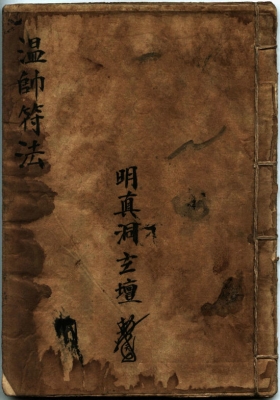 温帥符法
明真洞玄壇